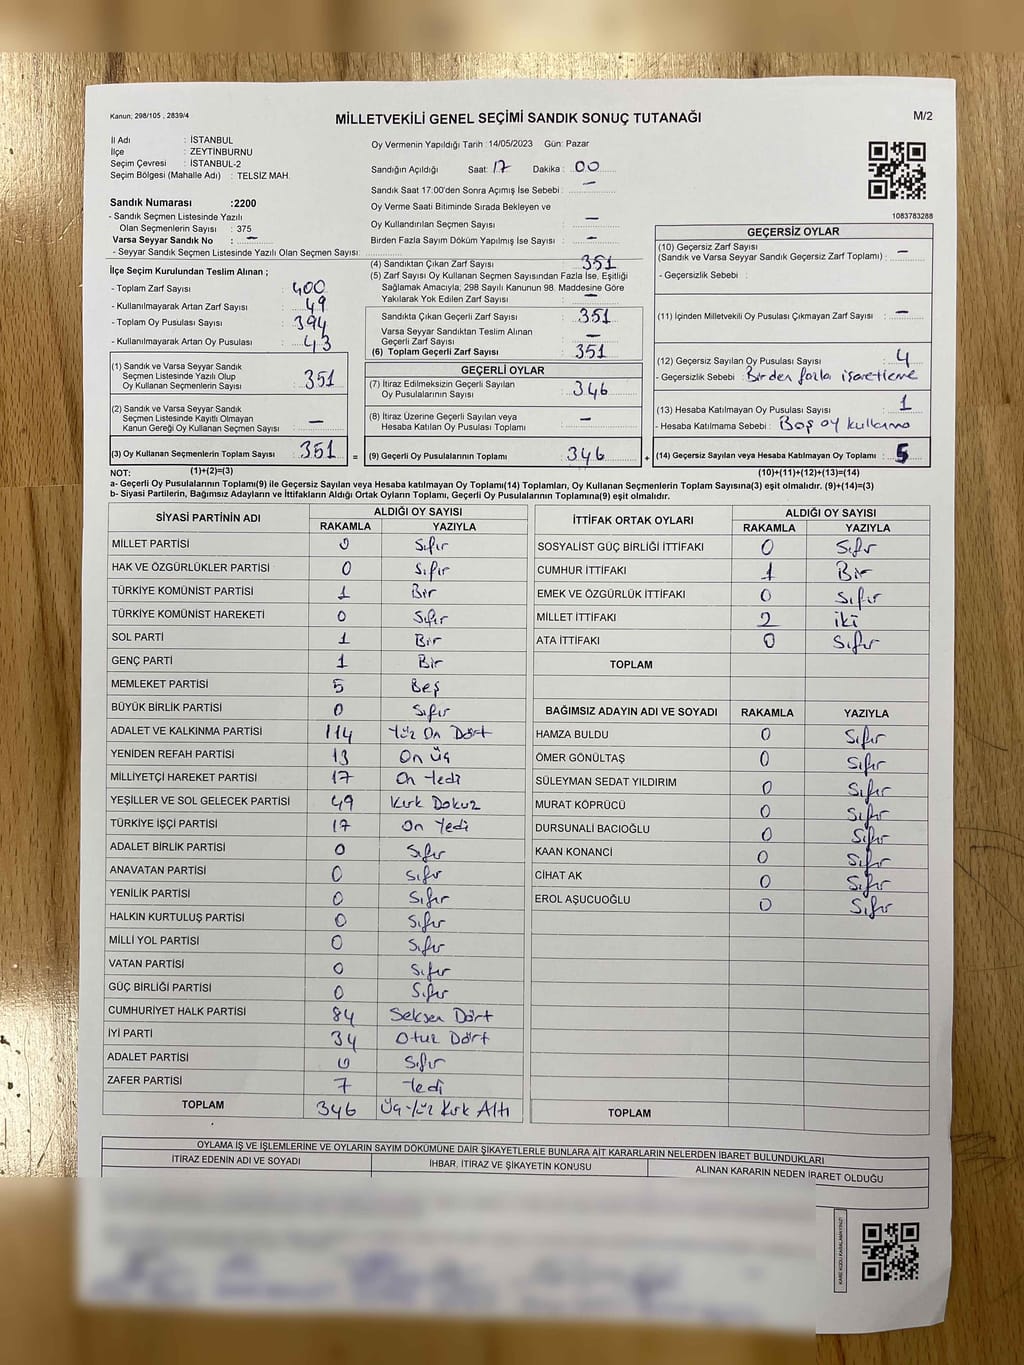 Kanun: 298/105 , 2839/4
MİLLETVEKİLİ GENEL SEÇİMİ SANDIK SONUÇ TUTANAĞI
M/2
İl Adı : İSTANBUL
İlçe : ZEYTİNBURNU
Seçim Çevresi : İSTANBUL-2
Seçim Bölgesi (Mahalle Adı) : TELSİZ MAH.
Sandık Numarası :2200
- Sandık Seçmen Listesinde Yazılı
Olan Seçmenlerin Sayısı : 375
Varsa Seyyar Sandık No : —
- Seyyar Sandık Seçmen Listesinde Yazılı Olan Seçmen Sayısı:
Oy Vermenin Yapıldığı Tarih : 14/05/2023 Gün: Pazar
Sandığın Açıldığı Saat: 17 Dakika : 00
Sandık Saat 17:00'den Sonra Açımış İse Sebebi : —
Oy Verme Saati Bitiminde Sırada Bekleyen ve
Oy Kullandırılan Seçmen Sayısı —
Birden Fazla Sayım Döküm Yapılmış İse Sayısı : —
1083783288
İlçe Seçim Kurulundan Teslim Alınan ;
- Toplam Zarf Sayısı : 400
- Kullanılmayarak Artan Zarf Sayısı : 49
- Toplam Oy Pusulası Sayısı : 394
- Kullanılmayarak Artan Oy Pusulası : 43
(1) Sandık ve Varsa Seyyar Sandık
Seçmen Listesinde Yazılı Olup
Oy Kullanan Seçmenlerin Sayısı : 351
(2) Sandık ve Varsa Seyyar Sandık
Seçmen Listesinde Kayıtlı Olmayan
Kanun Gereği Oy Kullanan Seçmen Sayısı : —
(3) Oy Kullanan Seçmenlerin Toplam Sayısı : 351
(4) Sandıktan Çıkan Zarf Sayısı : 351
(5) Zarf Sayısı Oy Kullanan Seçmen Sayısından Fazla İse, Eşitliği
Sağlamak Amacıyla; 298 Sayılı Kanunun 98. Maddesine Göre
Yakılarak Yok Edilen Zarf Sayısı : —
Sandıkta Çıkan Geçerli Zarf Sayısı : 351
Varsa Seyyar Sandıktan Teslim Alınan
Geçerli Zarf Sayısı : —
(6) Toplam Geçerli Zarf Sayısı : 351
GEÇERLİ OYLAR
(7) İtiraz Edilmeksizin Geçerli Sayılan
Oy Pusulalarının Sayısı : 346
(8) İtiraz Üzerine Geçerli Sayılan veya
Hesaba Katılan Oy Pusulası Toplamı : —
= (9) Geçerli Oy Pusulalarının Toplamı : 346
GEÇERSİZ OYLAR
(10) Geçersiz Zarf Sayısı
(Sandık ve Varsa Seyyar Sandık Geçersiz Zarf Toplamı) : —
- Geçersizlik Sebebi :
(11) İçinden Milletvekili Oy Pusulası Çıkmayan Zarf Sayısı : —
(12) Geçersiz Sayılan Oy Pusulası Sayısı : 4
- Geçersizlik Sebebi : Birden fazla işaretleme
(13) Hesaba Katılmayan Oy Pusulası Sayısı : 1
- Hesaba Katılmama Sebebi : Boş oy kullanma
+ (14) Geçersiz Sayılan veya Hesaba Katılmayan Oy Toplamı : 5
NOT: (1)+(2)=(3) (10)+(11)+(12)+(13)=(14)
a- Geçerli Oy Pusulalarının Toplamı(9) ile Geçersiz Sayılan veya Hesaba katılmayan Oy Toplamı(14) Toplamları, Oy Kullanan Seçmenlerin Toplam Sayısına(3) eşit olmalıdır. (9)+(14)=(3)
b- Siyasi Partilerin, Bağımsız Adayların ve İttifakların Aldığı Ortak Oyların Toplamı, Geçerli Oy Pusulalarının Toplamına(9) eşit olmalıdır.
SİYASİ PARTİNİN ADI ALDIĞI OY SAYISI
RAKAMLA YAZIYLA
MİLLET PARTİSİ 0 Sıfır
HAK VE ÖZGÜRLÜKLER PARTİSİ 0 Sıfır
TÜRKİYE KOMÜNİST PARTİSİ 1 Bir
TÜRKİYE KOMÜNİST HAREKETİ 0 Sıfır
SOL PARTİ 1 Bir
GENÇ PARTİ 1 Bir
MEMLEKET PARTİSİ 5 Beş
BÜYÜK BİRLİK PARTİSİ 0 Sıfır
ADALET VE KALKINMA PARTİSİ 114 Yüz On Dört
YENİDEN REFAH PARTİSİ 13 On Üç
MİLLİYETÇİ HAREKET PARTİSİ 17 On Yedi
YEŞİLLER VE SOL GELECEK PARTİSİ 49 Kırk Dokuz
TÜRKİYE İŞÇİ PARTİSİ 17 On Yedi
ADALET BİRLİK PARTİSİ 0 Sıfır
ANAVATAN PARTİSİ 0 Sıfır
YENİLİK PARTİSİ 0 Sıfır
HALKIN KURTULUŞ PARTİSİ 0 Sıfır
MİLLİ YOL PARTİSİ 0 Sıfır
VATAN PARTİSİ 0 Sıfır
GÜÇ BİRLİĞİ PARTİSİ 0 Sıfır
CUMHURİYET HALK PARTİSİ 84 Seksen Dört
İYİ PARTİ 34 Otuz Dört
ADALET PARTİSİ 0 Sıfır
ZAFER PARTİSİ 7 Yedi
TOPLAM 346 Üç Yüz Kırk Altı
İTTİFAK ORTAK OYLARI ALDIĞI OY SAYISI
RAKAMLA YAZIYLA
SOSYALİST GÜÇ BİRLİĞİ İTTİFAKI 0 Sıfır
CUMHUR İTTİFAKI 1 Bir
EMEK VE ÖZGÜRLÜK İTTİFAKI 0 Sıfır
MİLLET İTTİFAKI 2 İki
ATA İTTİFAKI 0 Sıfır
TOPLAM
BAĞIMSIZ ADAYIN ADI VE SOYADI RAKAMLA YAZIYLA
HAMZA BULDU 0 Sıfır
ÖMER GÖNÜLTAŞ 0 Sıfır
SÜLEYMAN SEDAT YILDIRIM 0 Sıfır
MURAT KÖPRÜCÜ 0 Sıfır
DURSUNALİ BACIOĞLU 0 Sıfır
KAAN KONANCİ 0 Sıfır
CİHAT AK 0 Sıfır
EROL AŞUCUOĞLU 0 Sıfır
TOPLAM
OYLAMA İŞ VE İŞLEMLERİNE VE OYLARIN SAYIM DÖKÜMÜNE DAİR ŞİKAYETLERLE BUNLARA AİT KARARLARIN NELERDEN İBARET BULUNDUKLARI
İTİRAZ EDENİN ADI VE SOYADI İHBAR, İTİRAZ VE ŞİKAYETİN KONUSU ALINAN KARARIN NEDEN İBARET OLDUĞU
KARE KODU KARALAMAYINIZ!